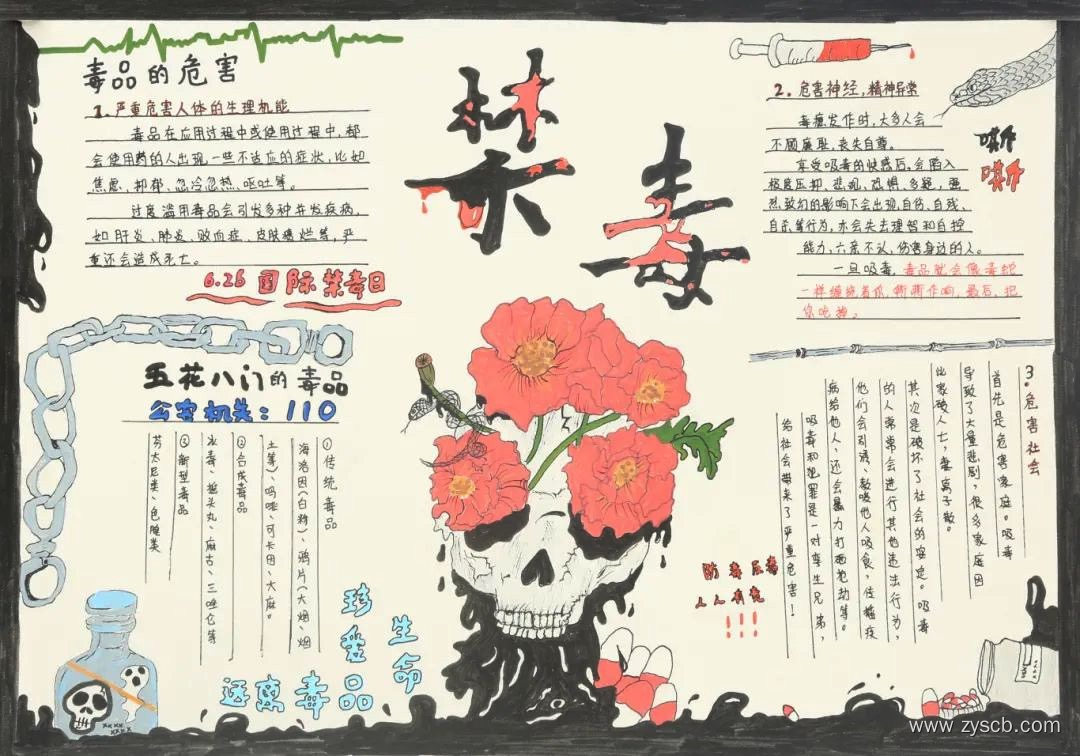 毒品的危害
1.严重危害人体的生理机能
毒品在应用过程中或使用过程中,都
会使用药的人出现一些不适应的症状,比如
焦虑、抑郁、忽冷忽热、呕吐等。
过度滥用毒品会引发多种并发疾病,
如肝炎、肺炎、败血症、皮肤溃烂等,严
重还会造成死亡。
6.26国际禁毒日
禁毒
2.危害神经,精神异常
毒瘾发作时,大多人会
不顾廉耻,丧失自尊。
享受吸毒的快感后,会陷入
极度压抑、悲观、恐惧、多疑,强
烈致幻的影响下会出现,自伤、自残、
自杀等行为,亦会失去理智和自控
能力,六亲不认,伤害身边的人。
一旦吸毒,毒品就会像毒蛇
一样缠绕着你,嘶嘶作响,最后,把
你吃掉。
嘶
嘶
五花八门的毒品
公安机关:110
①传统毒品
海洛因(白粉)、鸦片(大烟、烟
土等)、吗啡、可卡因、大麻。
②合成毒品
冰毒、摇头丸、麻古、三唑仑等
③新型毒品
芬太尼类、色胺类
3.危害社会
首先是危害家庭。吸毒
导致了大量悲剧,很多家庭因
此家破人亡,妻离子散。
其次是破坏了社会的安定。吸毒
的人常常会进行其他违法行为,
他们会引诱、教唆他人吸食,传播疾
病给他人,还会暴力打砸抢劫等。
吸毒和犯罪是一对孪生兄弟,
给社会带来了严重危害!
防毒反毒
人人有责
!!!
珍爱生命
远离毒品
www.zyscb.com